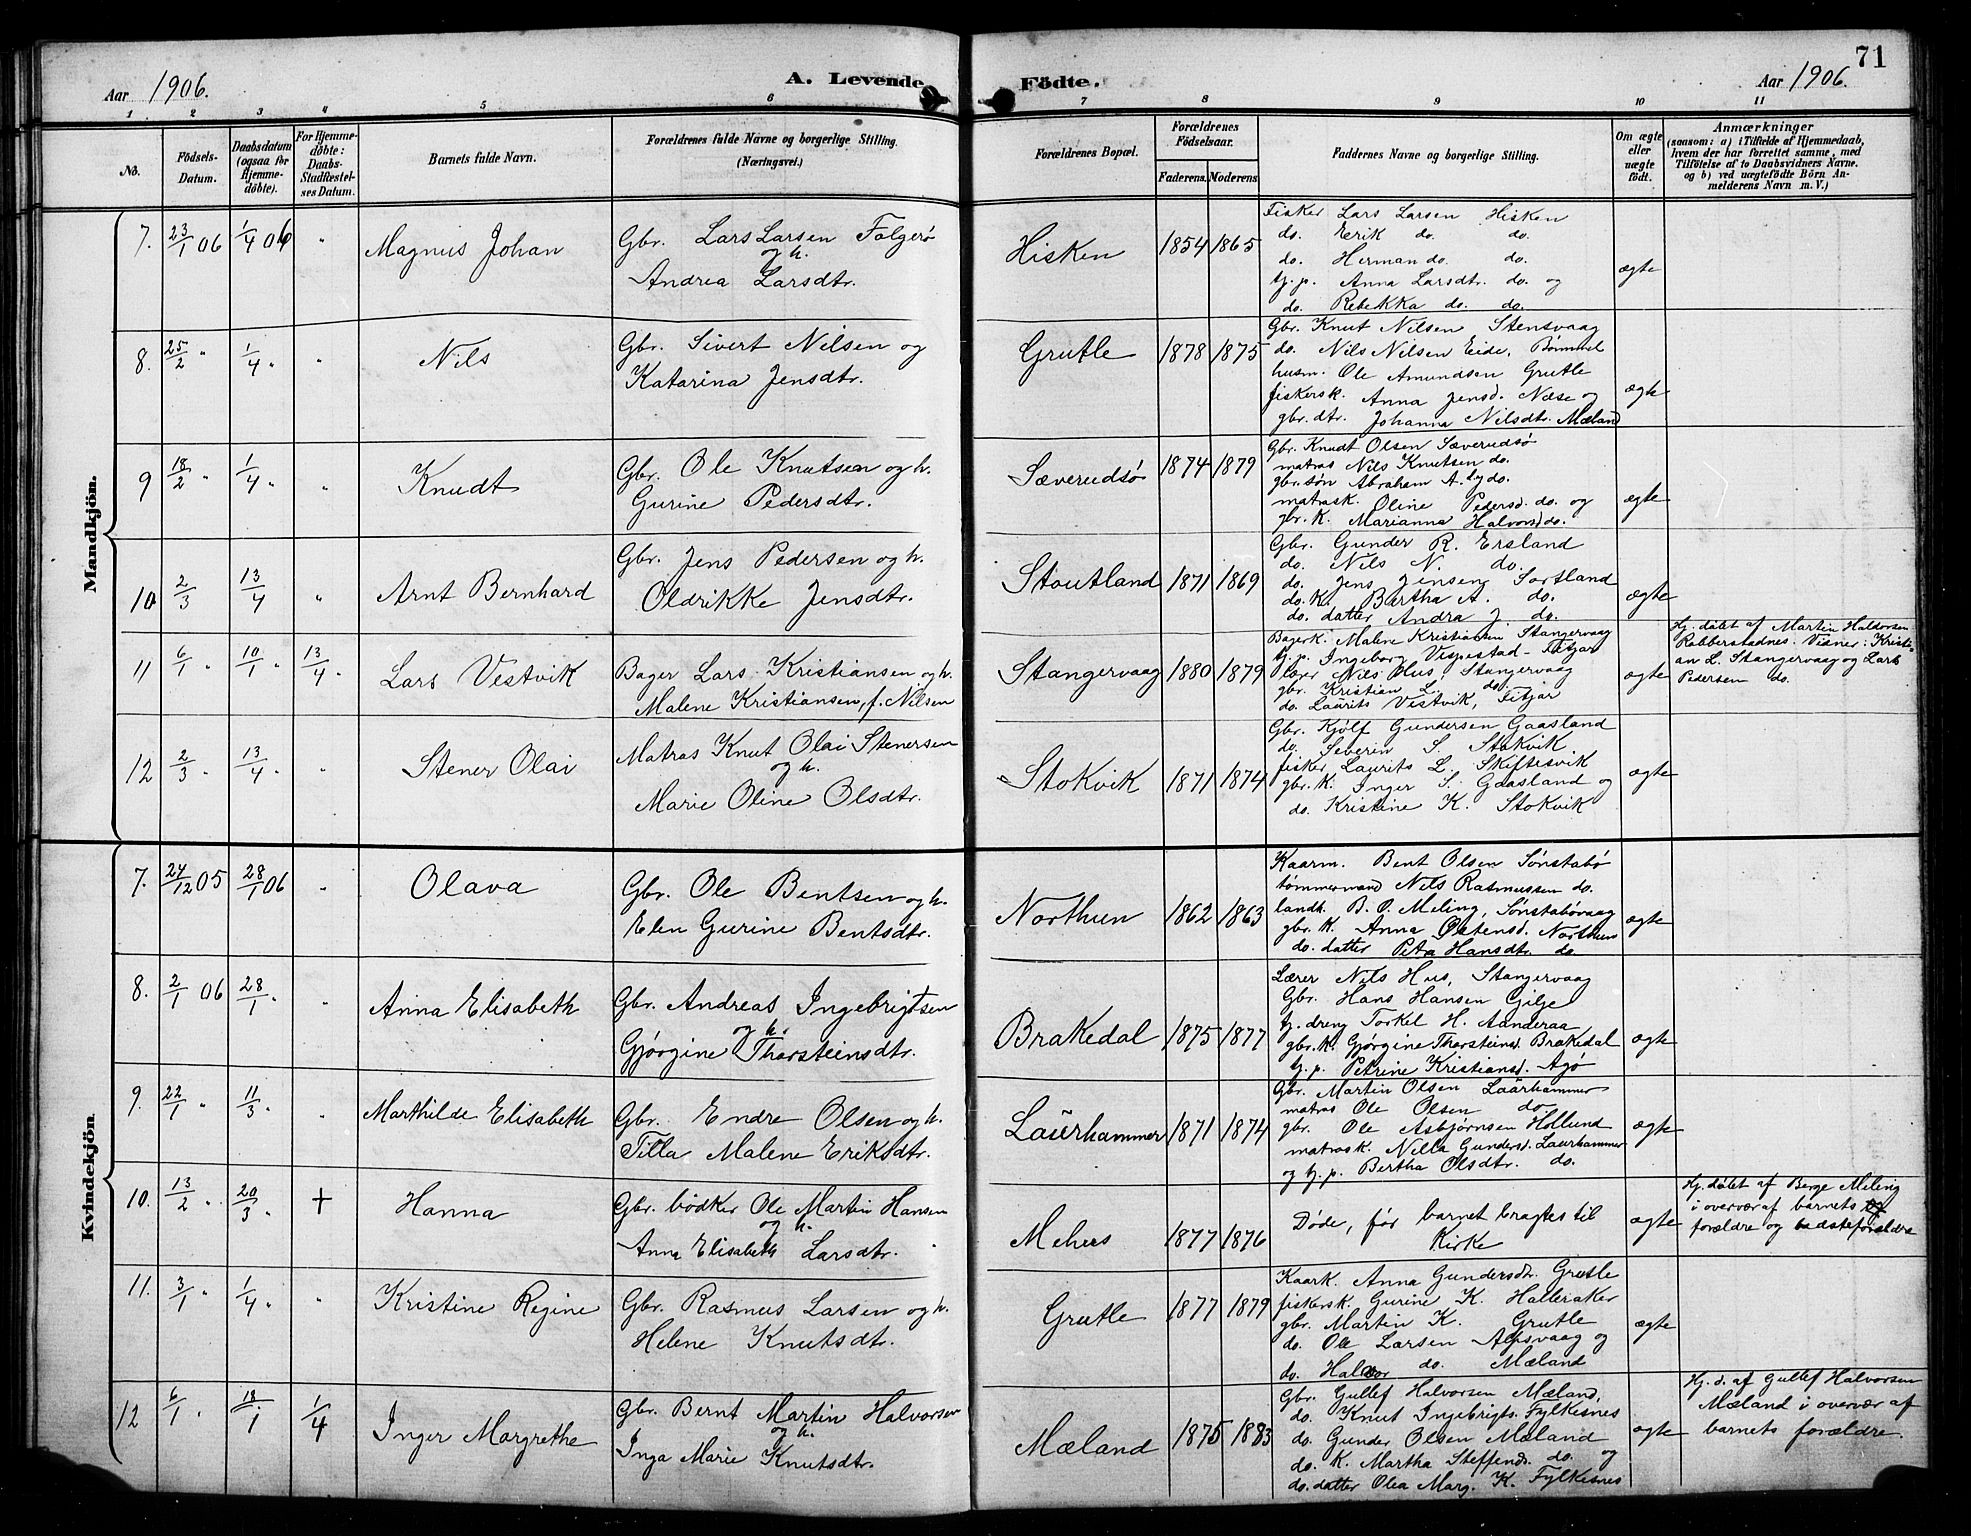 Aar 1906.
A. Levende Födte.
Aar 1906.
71
1 2 3 4 5 6 7 8 9 10 11
No.
Födsels-Datum.
Daabsdatum (ogsaa for Hjemme-döbte).
For Hjemme-döbte: Daabs-Stadfæstel-ses Datum.
Barnets fulde Navn.
Forældrenes fulde Navne og borgerlige Stilling. (Næringsvei.)
Forældrenes Bopæl.
Forældrenes Födselsaar.
Faderens. Moderens
Faddernes Navne og borgerlige Stilling.
Om ægte eller uægte födt.
Anmærkninger
(saasom: a) i Tilfælde af Hjemmedaab, hvem der har forrettet samme, med Tilföielse af to Daabsvidners Navne. og b) ved uægtefödte Börn An-melderens Navn m. V.)
Mandkjön.
7. 23/1 06 1/4 06 "
Magnus Johan
Gbr. Lars Larsen Folgerø
og h.
Andrea Larsdtr.
Hisken 1854 1865
Fisker Lars Larsen Hisken
do. Erik do. do.
do. Herman do. do.
tj.p. Anna Larsdtr. do. og
do. Rebekka do. do.
ægte
8. 25/2 " 1/4 " "
Nils
Gbr. Sivert Nilsen og
Katarina Jensdtr.
Grutle 1878 1875
Gbr. Knut Nilsen Stensvaag
do. Nils Nilsen Eide, Bømmel
husm. Ole Amundsen Grutle
fiskersk. Anna Jensd. Næse og
gbr. dtr. Johanna Nilsdtr. Mæland
ægte
9 18/2 " 1/4 " "
Knudt
Gbr. Ole Knutsen og h.
Gurine Pedersdtr.
Sæverudsø 1874 1879
Gbr. Knudt Olsen Sæverudsø
matros Nils Knutsen do.
gbr. søn Abraham A. do.
matrosk. Oline Pedersd. do. og
gbr. K. Marianna Halvorsd do.
ægte
10 2/3 13/4 "
Arnt Bernhard
Gbr. Jens Pedersen og h.
Oldrikke Jensdtr.
Stoutland 1871 1869
Gbr. Gunder R. Ersland
do. Nils N. do.
do. Jens Jensen Sortland
do. K. Bertha A. do.
do. datter Andra J. do.
ægte
11 6/1 " 10/1 " 13/4 "
Lars Vestvik
Bager Lars Kristiansen og h.
Malene Kristiansen, f. Nilsen
Stangervaag 1880 1879
Bagerk. Malene Kristiansen Stangervaag
tj.p. Ingeborg Vespestad - Fitjar
lærer Nils Hus, Stangervaag
gbr. Kristian L. do.
do. Laurits Vestvik, Fitjar
ægte
Hj. døbt af Martin Haldorsen
Robberstadnes. Vidner: Kristi-
an L. Stangervaag og Lars
Pedersen do.
12 2/3 " 13/4 " "
Stener Olai
Matros Knut Olai Stenersen
og h.
Marie Oline Olsdtr.
Stokvik 1871 1874
Gbr. Kjølf Gundersen Gaasland
do. Severin S. Stokvik
fisker Laurits L. Skiftesvik
gbr. K. Inger S. Gaasland og
do. Kristine K. Stokvik
ægte
Kvindekjön
7. 24/12 05 28/1 06 "
Olava
Gbr. Ole Bentsen og h.
Elen Gurine Bentsdtr.
Northun 1862 1863
Kaarm. Bent Olsen Sønstabø
tømmermand Nils Rasmussen do.
landh. B. O. Meling, Sønstabøvaag
gbr. K. Anna Østensd. Northun
do. datter Petra Hansdtr. do.
ægte
8. 2/1 06 28/1 " "
Anna Elisabeth
Gbr. Andreas Ingebrigtsen
og h.
Gjørgine Thorsteinsdtr.
Brakedal 1875 1877
Lærer Nils Hus, Stangervaag
Gbr. Hans Hansen Gilje
tj. dreng Torkel H. Aanderaa
gbr. K. Gjørgine Thorsteinsd. Brakedal
tj.p. Petrine Kristiansd. Agø
ægte
9. 22/1 " 11/3 " "
Marthilde Elisabeth
Gbr. Endre Olsen og h.
Tilla Malene Eriksdtr.
Laurhammer 1871 1874
Gbr. Martin Olsen Laurhammer
matros Ole Olsen do
gbr. Ole Asbjørnsen Hollund
matrosk. Nilla Gundersd. Laurhammer
og tj.p. Bertha Olsdtr. do.
ægte
10. 13/2 " 20/3 " †
Hanna
Gbr. bødker Ole Martin Hansen
og h.
Anna Elisabeth Larsdtr.
Mehus 1877 1876
Døde, før barnet bragtes til
Kirke
ægte
Hj. døbt af Berge Meling
i overvær af barnets
forældre og bedsteforældre
11. 3/1 " 1/4 " "
Kristine Regine
Gbr. Rasmus Larsen og h.
Helene Knutsdtr.
Grutle 1877 1879
Kaark. Anna Gundersdtr. Grutle
fiskersk. Gurine K. Halleraker
gbr. Martin K. Grutle
do. Ole Larsen Alpsvaag og
do. Haldor do. Mæland
ægte
12 6/1 " 18/1 1/4
Inger Margrethe
Gbr. Bernt Martin Halvorsen
og h.
Inga Marie Knutsdtr.
Mæland 1875 1883
Gbr. Gullef Halvorsen Mæland,
do. Knut Ingebrigts. Fylkesnes
do. Gunder Olsen Mæland
do. K. Martha Steffensd. do. og
do. datter Olea Marg. K. Fylkesnes
ægte
Hj. d. af Gullef Halvorsen
Mæland i overvær af
barnets forældre.